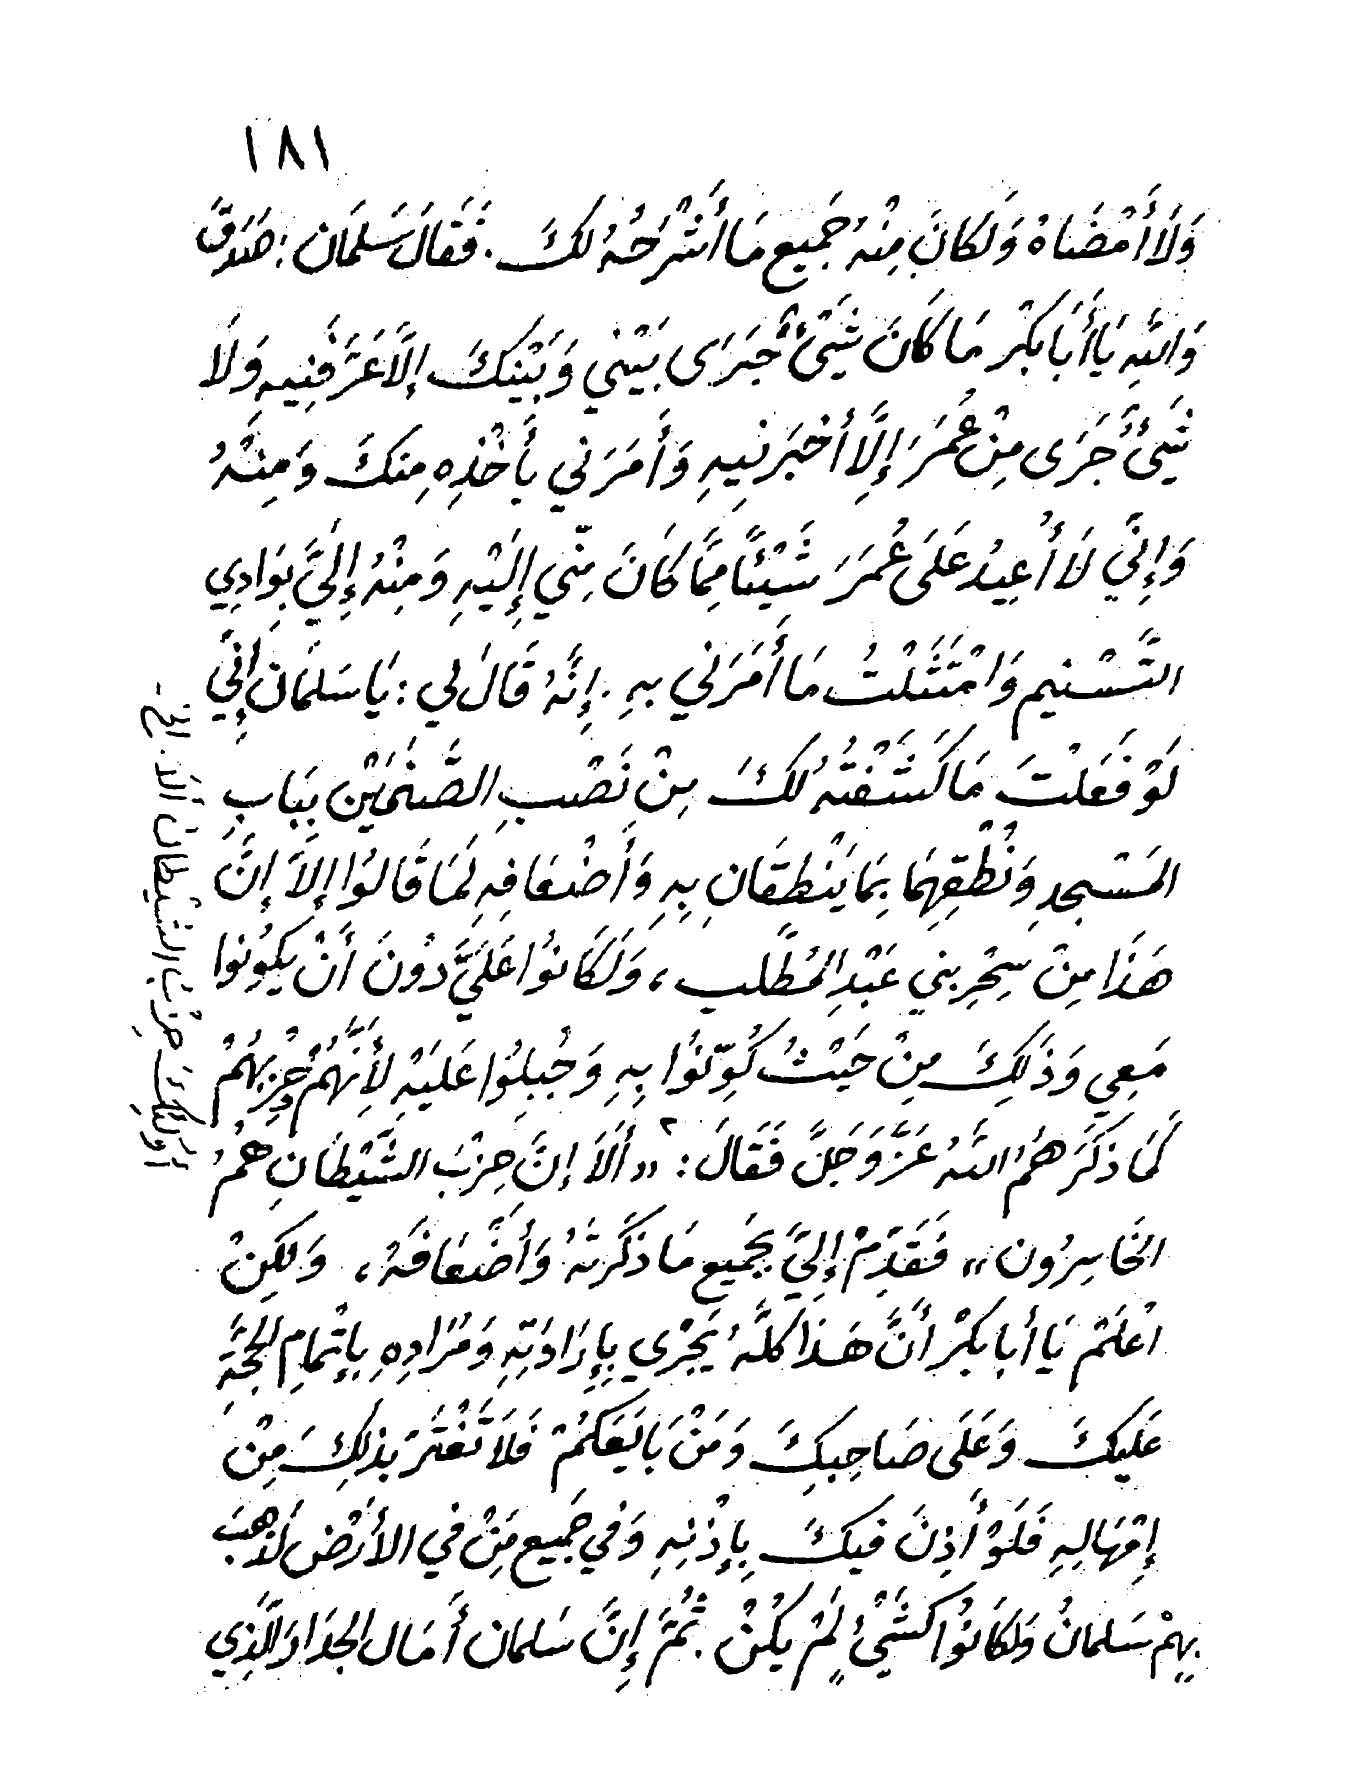 ١٨١
وَلَا أَمْضَاهُ وَلَكَانَ مِنْهُ جَمِيع مَا أَشْرَحُهُ لَكَ . فَقَالَ سَلمَان : صَدَقْ
وَاللهِ يَا أَبَا بَكْر مَا كَانَ شَيْئٌ جَرَى بَيْنِي وَبَيْنكَ إِلَّا عَرَّفَنِيهِ وَلَا
شَيْئٌ جَرَى مِنْ عُمَرَ إِلَّا أَخْبَرَنِيهِ وَأَمَرَنِي بِأَخْذِهِ مِنكَ وَمِنْهُ
وَإِنِّي لَا أُعِيدُ عَلَى عُمَرَ شَيْئًا مِمَّا كَانَ مِنِّي إِلَيْهِ وَمِنْهُ إِلَيَّ بِوَادِي
التَّسْنِيم وَامْتَثَلْتُ مَا أَمَرَنِي بِهِ . إِنَّهُ قَالَ لِي : يَا سَلمَان إِنِّي
لَوْ فَعَلْتَ مَا كَشَفْتَهُ لَكَ مِنْ نَصْبِ الصَّنَمَيْن بِبَابِ
المَسْجِدِ وَنُطْقِهِمَا بِمَا يَنْطِقَانِ بِهِ وَأَضْعَافِهِ لَمَا قَالُوا إِلاَّ إِنَّ
هَذَا مِنْ سِحْرِ بنِي عَبْدِ المُطَّلب ، وَلَكَانُوا عَلَيَّ دُونَ أَنْ يَكُونُوا
مَعِي وَذَلِكَ مِنْ حَيْثُ كُوِّنُوا بِهِ وَجُبِلُوا عَلَيْهِ لِأَنَّهُمْ حِزْبُهُمْ
كَمَا ذَكَرَهُمُ اللهُ عَزَّ وَجَلَّ فَقَالَ : ٢ « أَلَا إِنَّ حِزْبَ الشَّيْطَانِ هُمُ
الخَاسِرُون » فَقَدِّمْ إِلَيَّ بِجَمِيعِ مَا ذَكَرتهُ وَأَضْعَافَهُ ، وَلكِنْ
اعْلَمْ يَا أَبَا بَكْر أَنَّ هَذَا كلَّهُ يَجْرِي بِإِرَادَتِهِ وَمُرَادِهِ بِإِتْمَامِ الحُجَّةِ
عَلَيكَ وَعَلَى صَاحِبِكَ وَمَنْ بَايَعَكُمْ فَلَا تَغْتَرّ بِذلِكَ مِنْ
إِمْهَالِهِ فَلَوْ أَذِنَ فيكَ بِإِذْنِهِ وَفي جَمِيع مَنْ في الأَرْض لَذهبَ
بِهِمْ سَلمانُ وَلكَانُوا كَشَيْئٍ لَمْ يَكُنْ . ثُمَّ إِنَّ سَلمان أَمَال الجِدَار الَّذِي
أُولئِكَ حِزْبُ الشيْطانِ أَلَا . الخ -